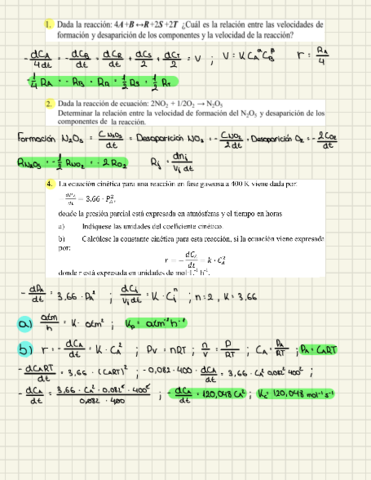 1. Dada la reacción: 4A+B↔R+2S+2T ¿Cuál es la relación entre las velocidades de
formación y desaparición de los componentes y la velocidad de la reacción?
- dCA/4dt = - dCB/dt = dCR/dt = dCS/2 = dCT/2 = V ; V = K CA^α CB^β r = RA/4
-1/4 RA = - RB = RR = 1/2 RS = 1/2 RT
2. Dada la reacción de ecuación: 2NO2 + 1/2O2 → N2O5
Determinar la relación entre la velocidad de formación del N2O5 y desaparición de los
componentes de la reacción.
Formación N2O5 = CN2O5/dt = Desaparición NO2 = - CNO2/2dt = Desaparición O2 = - 2CO2/dt
RN2O5 = -1/2 RNO2 = - 2RO2 Ri = dni/Vi dt
4. La ecuación cinética para una reacción en fase gaseosa a 400 K viene dada por:
= 3.66 · PA^2,
donde la presión parcial está expresada en atmósferas y el tiempo en horas
a) Indíquese las unidades del coeficiente cinético
b) Calcúlese la constante cinética para esta reacción, si la ecuación viene expresada
por:
r = - dCA/dt = k · CA^2
donde r está expresada en unidades de mol l-1 h-1.
- dPA/dt = 3,66 · PA^2 ; dCi/Vi dt = K · Ci^n ; n = 2 , K = 3.66
a) atm/h = K · atm^2 ; Kp = atm^-1 h^-1
b) r = - dCA/dt = K · CA^2 ; PV = nRT ; n/V = P/RT ; CA = PA/RT ; PA = CART
- dCART/dt = 3,66 · (CART)^2 ; - 0,082 · 400 · dCA/dt = 3,66 · CA^2 0,082^2 400^2 ;
- dCA/dt = 3,66 · CA^2 · 0,082^2 · 400^2 / 0,082 · 400 ; - dCA/dt = 120,048 CA^2 ; Kc = 120,048 mol^-1 s^-1